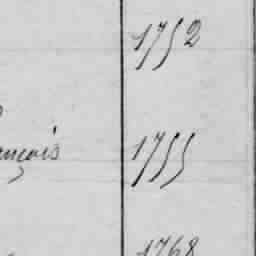 1752
ançais 1755
1768